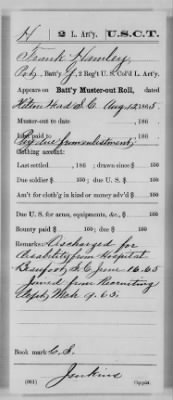 H | 2 L. Art'y. | U.S.C.T.
Frank Hamley
Pvt., Batt'y G, 2 Reg't U. S. Col'd L. Art'y.
Appears on Batt'y Muster-out Roll, dated
Hilton Head S.C. Aug 12, 1865.
Muster-out to date , 186 .
Last paid to , 186 .
Pay due from enlistment
Clothing account:
Last settled , 186 ; drawn since $ 100
Due soldier $ 100; due U. S. $ 100
Am't for cloth'g in kind or money adv'd $ 100
Due U. S. for arms, equipments, &c., $ 100
Bounty paid $ 100; due $ 100
Remarks: Discharged for
disability from Hospital
Beaufort S.C. June 16.65
Joined from Recruiting
Mch 9.65.
Book mark:
Jenkins
(861) Copyist.